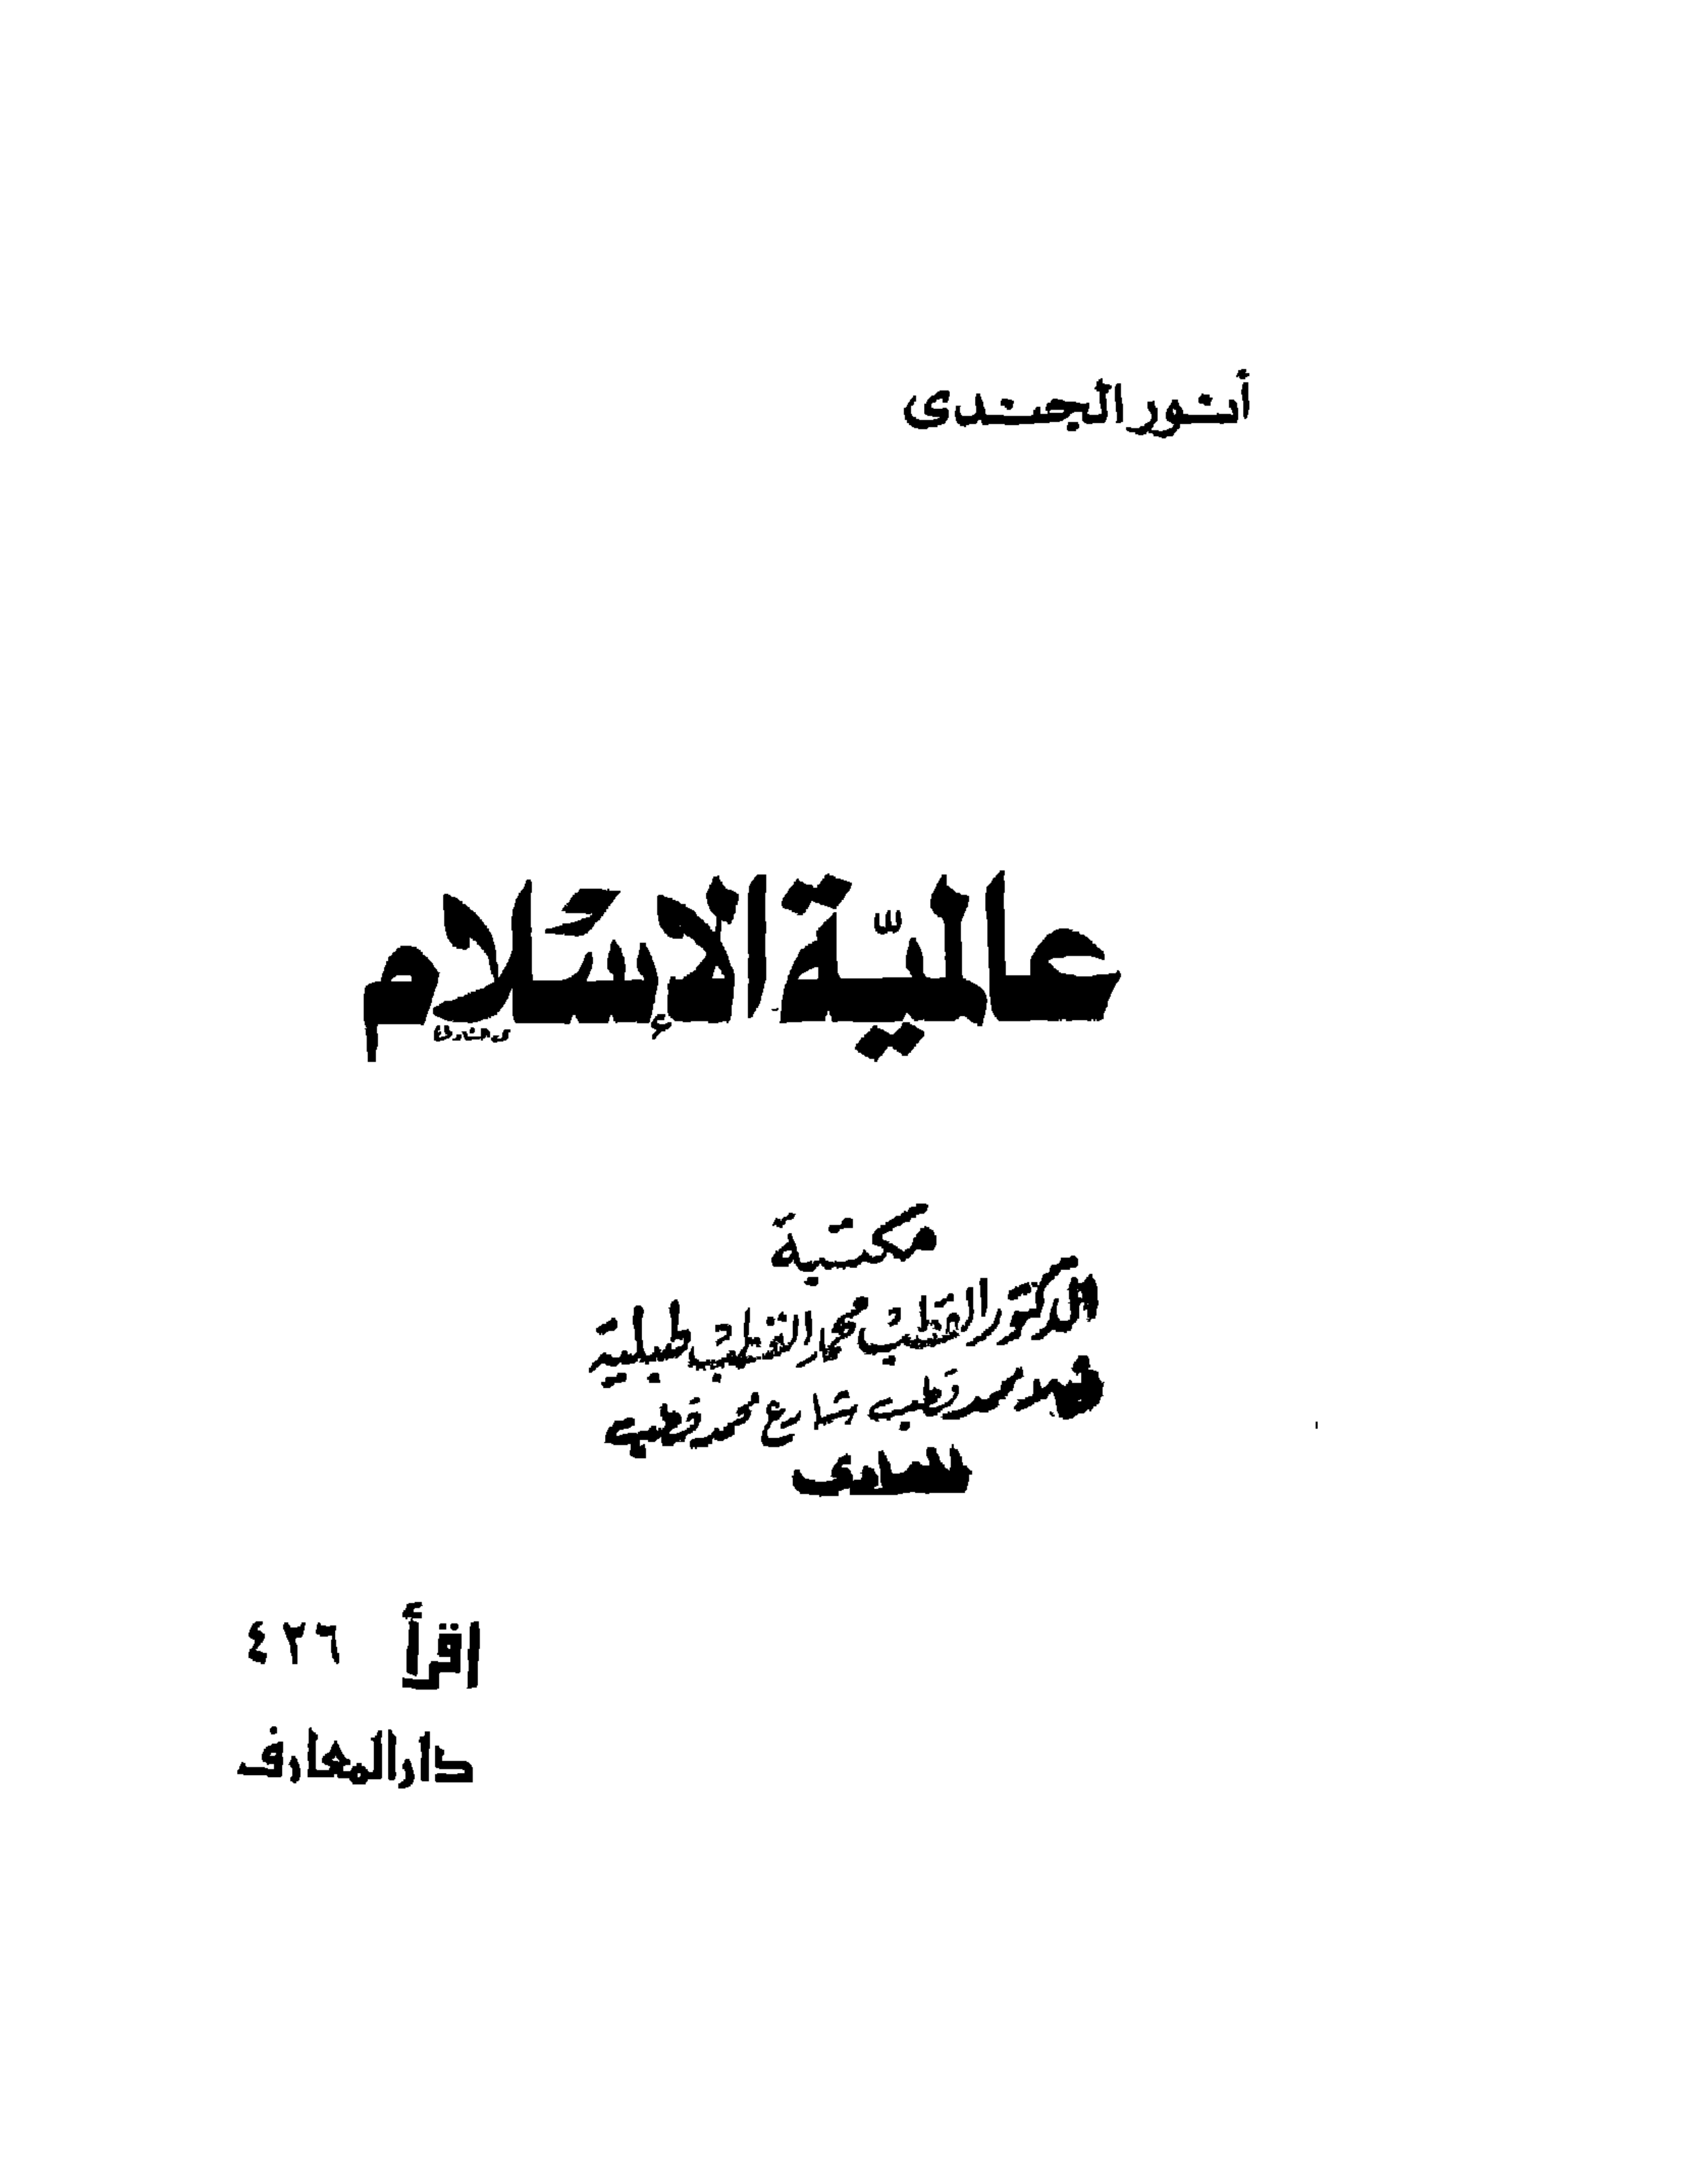 أنور الجندى
عالميّة الإسلام
مكتبة
الدكتور القطب محمد القطب طبلية
محمد قطب شارع محمد قطب
اقرأ ٤٢٦
دار المعارف